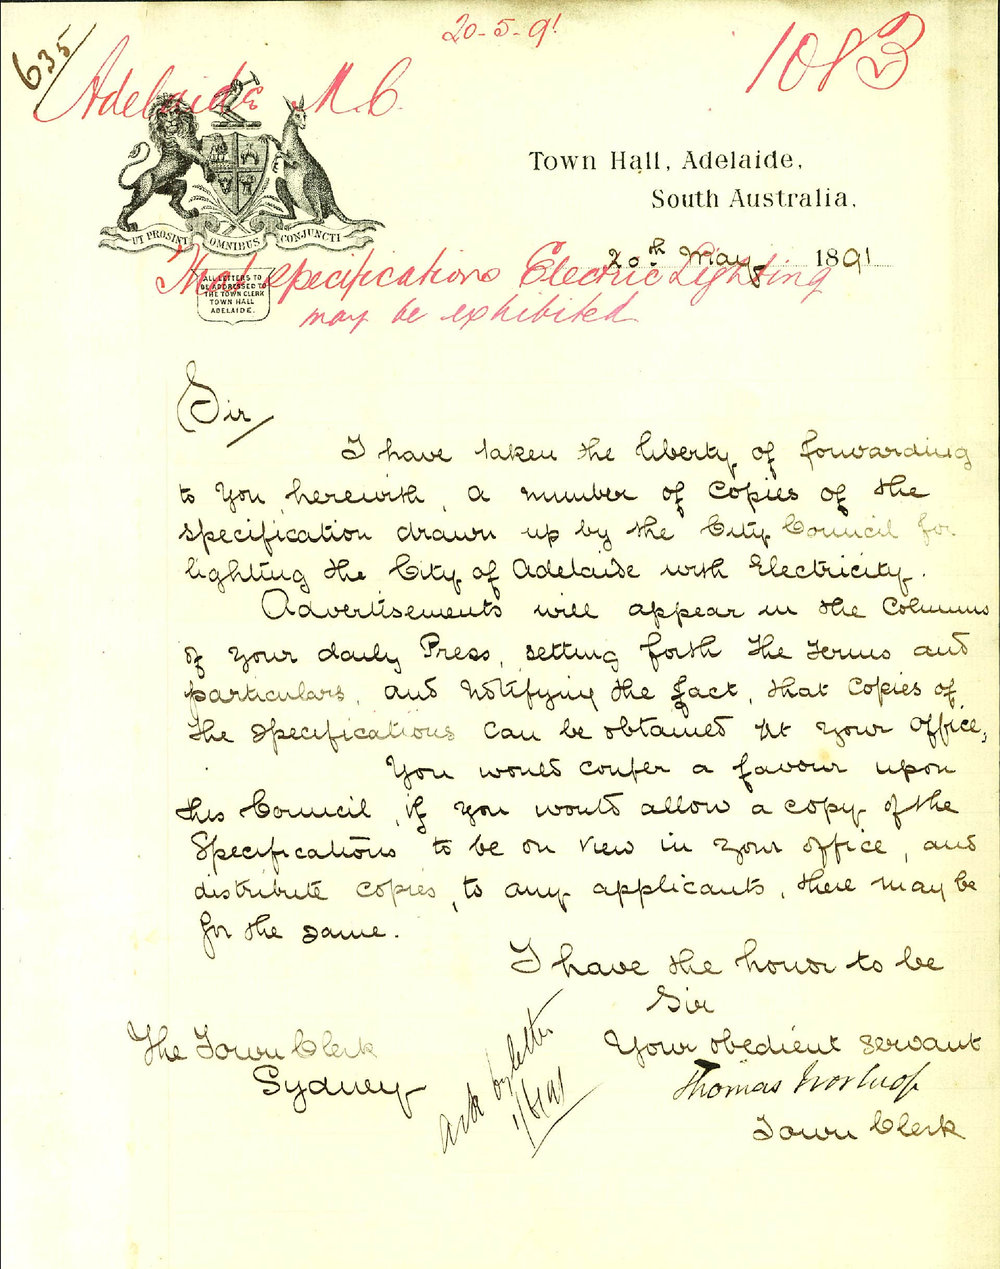 635
20-5-91
1083
Adelaide M.C.
Town Hall, Adelaide,
South Australia,
UT PROSINT OMNIBUS CONJUNCTI
20th May 1891
That specifications Electric Lighting
may be exhibited
ALL LETTERS TO
BE ADDRESSED TO
THE TOWN CLERK
TOWN HALL
ADELAIDE.
Sir
I have taken the liberty of forwarding
to you herewith, a number of Copies of the
specification drawn up by the City Council for
lighting the City of Adelaide with Electricity.
Advertisements will appear in the Columns
of your daily Press, setting forth the terms and
particulars, and notifying the fact, that Copies of
the specifications can be obtained at your office,
You would confer a favour upon
this Council, if you would allow a copy of the
Specifications to be on view in your office, and
distribute copies, to any applicants, there may be
for the same.
I have the honor to be
Sir
Your obedient servant
Thomas Worsnop
Town Clerk
The Town Clerk
Sydney
by letter
1/6/91